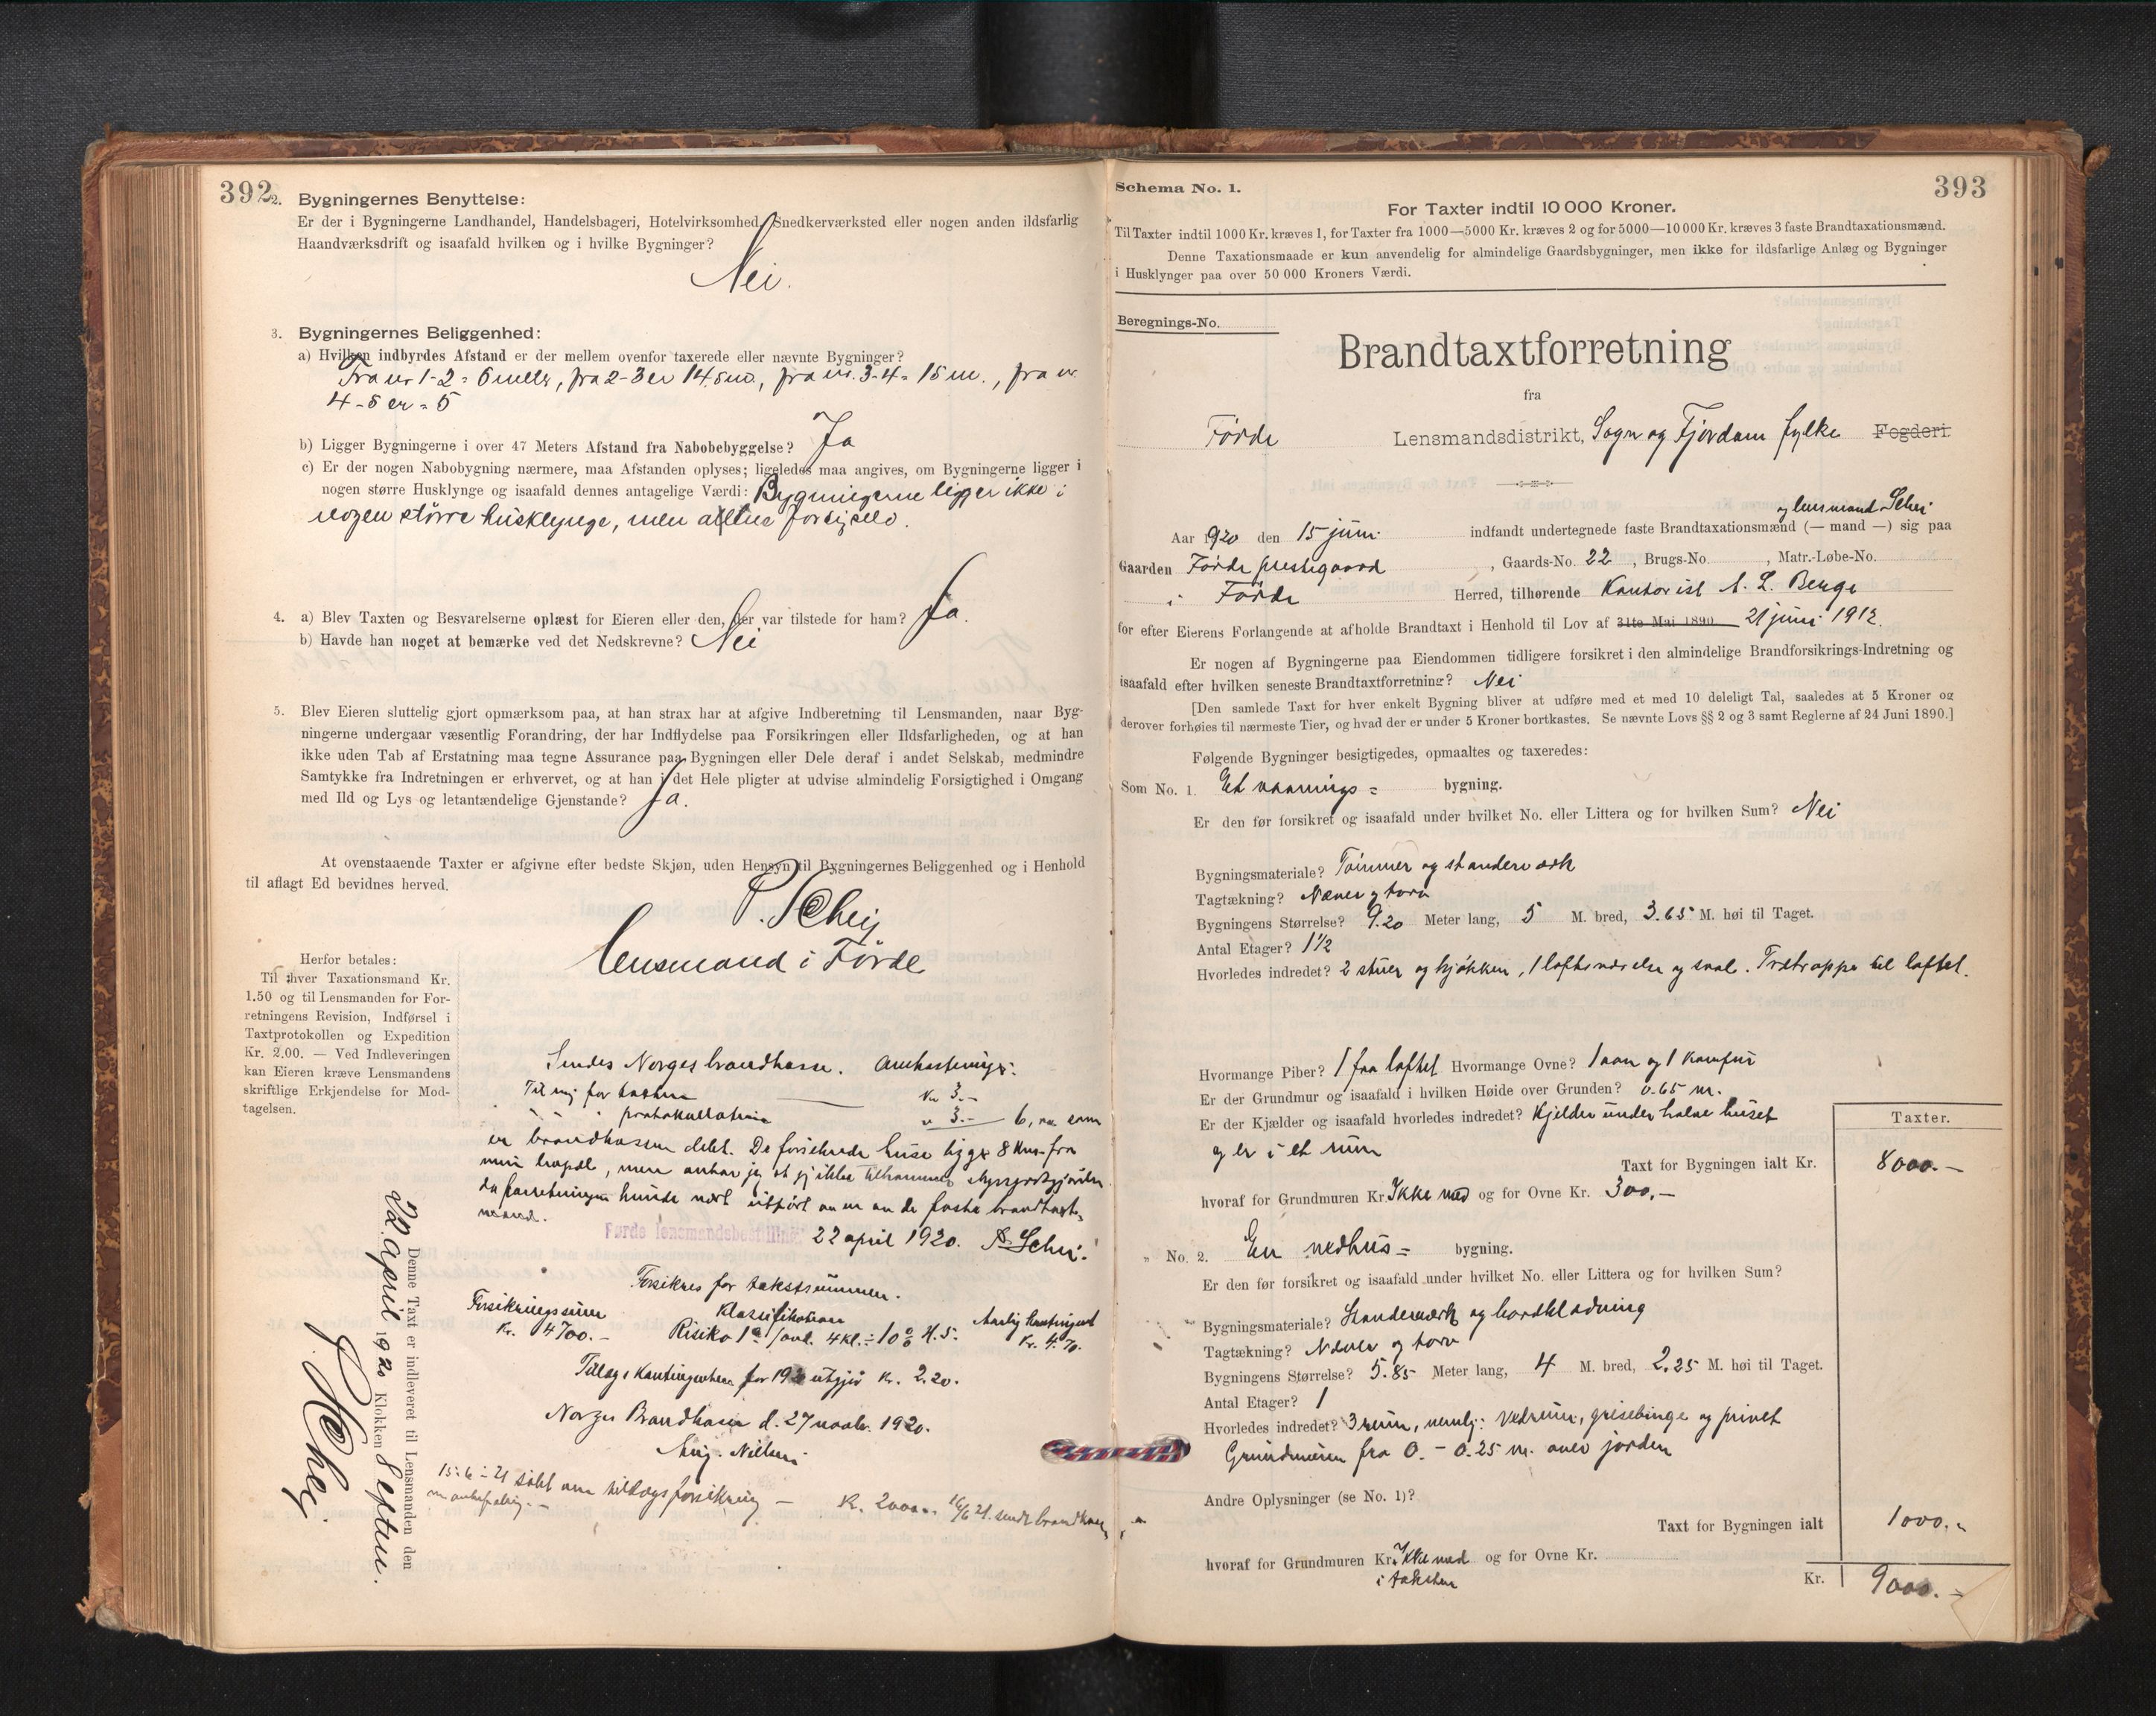 392
2. Bygningernes Benyttelse:
Er der i Bygningerne Landhandel, Handelsbageri, Hotelvirksomhed, Snedkerværksted eller nogen anden ildsfarlig
Haandværksdrift og isaafald hvilken og i hvilke Bygninger?
Nei.
3. Bygningernes Beliggenhed:
a) Hvilken indbyrdes Afstand er der mellem ovenfor taxerede eller nævnte Bygninger?
Fra nr 1-2 = 6 meter, fra 2-3 er 14.5 m., fra nr. 3-4 = 15 m., fra nr.
4-5 er = 5
b) Ligger Bygningerne i over 47 Meters Afstand fra Nabobebyggelse? Ja
c) Er der nogen Nabobygning nærmere, maa Afstanden oplyses; ligeledes maa angives, om Bygningerne ligger i
nogen større Husklynge og isaafald dennes antagelige Værdi: Bygningerne ligger ikke i
nogen større husklynge, men alene for sig selv.
4. a) Blev Taxten og Besvarelserne oplæst for Eieren eller den, der var tilstede for ham? Ja.
b) Havde han noget at bemærke ved det Nedskrevne? Nei
5. Blev Eieren sluttelig gjort opmærksom paa, at han strax har at afgive Indberetning til Lensmanden, naar Byg-
ningerne undergaar væsentlig Forandring, der har Indflydelse paa Forsikringen eller Ildsfarligheden, og at han
ikke uden Tab af Erstatning maa tegne Assurance paa Bygningen eller Dele deraf i andet Selskab, medmindre
Samtykke fra Indretningen er erhvervet, og at han i det Hele pligter at udvise almindelig Forsigtighed i Omgang
med Ild og Lys og letantændelige Gjenstande? Ja.
At ovenstaaende Taxter er afgivne efter bedste Skjøn, uden Hensyn til Bygningernes Beliggenhed og i Henhold
til aflagt Ed bevidnes herved.
P. Schei
lensmand i Førde
Herfor betales:
Til hver Taxationsmand Kr.
1.50 og til Lensmanden for For-
retningens Revision, Indførsel i
Taxtprotokollen og Expedition
Kr. 2.00. — Ved Indleveringen
kan Eieren kræve Lensmandens
skriftlige Erkjendelse for Mod-
tagelsen.
Sendes Norges brandkasse. Omkostninger:
Til mig for taksten Kr 3.—
" " " protokollation " 3.— 6, som
er brandkassen debet. De forsikrede huse ligger 8 km. fra
min bopæl, men antar jeg at jeg ikke tilkommer skyssgodtgjørelse
da forretningen kunde vært utført av en av de faste brandtakst-
mænd.
Førde lensmandsbestilling 22 april 1920. P. Schei.
Forsikres for takstsummen.
Forsikringssum Klassifikation Aarlig kontingent
Kr. 4700.— Risiko 1a/avd. 4 kl. ÷ 10% H.S. Kr. 4.70.
Tillægskontingenten for 1920 utgjør Kr. 2.20.
Norges Brandkasse d. 27 novbr. 1920.
Aug. Nielsen
15-6-21 søkt om tillægsforsikring — Kr. 2000.— 16/6 21. sendt brandkassen
m anbefaling. —
Denne Taxt er indleveret til Lensmanden den
22. april 1920 Klokken 8 eftm.
P. Schei
393
Schema No. 1.
For Taxter indtil 10 000 Kroner.
Til Taxter indtil 1000 Kr. kræves 1, for Taxter fra 1000—5000 Kr. kræves 2 og for 5000—10000 Kr. kræves 3 faste Brandtaxationsmænd.
Denne Taxationsmaade er kun anvendelig for almindelige Gaardsbygninger, men ikke for ildsfarlige Anlæg og Bygninger
i Husklynger paa over 50 000 Kroners Værdi.
Beregnings-No.
Brandtaxtforretning
fra
Førde Lensmandsdistrikt, Sogn og Fjordane fylke Fogderi.
og lensmand Schei
Aar 1920 den 15 juni indfandt undertegnede faste Brandtaxationsmænd (— mand —) sig paa
Gaarden Førde prestegaard, Gaards-No. 22, Brugs-No. , Matr.-Løbe-No.
i Førde Herred, tilhørende Kontorist A. L. Berge
for efter Eierens Forlangende at afholde Brandtaxt i Henhold til Lov af 31te Mai 1890 21 juni 1912.
Er nogen af Bygningerne paa Eiendommen tidligere forsikret i den almindelige Brandforsikrings-Indretning og
isaafald efter hvilken seneste Brandtaxtforretning? Nei
[Den samlede Taxt for hver enkelt Bygning bliver at udføre med et med 10 deleligt Tal, saaledes at 5 Kroner og
derover forhøies til nærmeste Tier, og hvad der er under 5 Kroner bortkastes. Se nævnte Lovs §§ 2 og 3 samt Reglerne af 24 Juni 1890.]
Følgende Bygninger besigtigedes, opmaaltes og taxeredes:
Som No. 1. Et vaanings = bygning.
Er den før forsikret og isaafald under hvilket No. eller Littera og for hvilken Sum? Nei
Bygningsmateriale? Tømmer og standerverk
Tagtækning? Næver og torv
Bygningens Størrelse? 9.20 Meter lang, 5 M. bred, 3.65 M. høi til Taget.
Antal Etager? 1½
Hvorledes indredet? 2 stuer og kjøkken, 1 loftsværelse og sval. Trætrappe til loftet.
Hvormange Piber? 1 fra loftet Hvormange Ovne? 1 ovn og 1 komfur
Er der Grundmur og isaafald i hvilken Høide over Grunden? 0.65 m.
Er der Kjælder og isaafald hvorledes indredet? Kjelder under halve huset
og er i et rum
Taxter.
Taxt for Bygningen ialt Kr. 8000.—
hvoraf for Grundmuren Kr. Ikke med og for Ovne Kr. 300.—
" No. 2. En vedhus = bygning.
Er den før forsikret og isaafald under hvilket No. eller Littera og for hvilken Sum?
Bygningsmateriale? Standerværk og bordklædning
Tagtækning? Næver og torv
Bygningens Størrelse? 5.85 Meter lang, 4 M. bred, 2.25 M. høi til Taget.
Antal Etager? 1
Hvorledes indredet? 3 rum, nemlig: Vedrum, grisebinge og privet
Grundmuren fra 0. – 0.25 m. over jorden
Andre Oplysninger (se No. 1)?
Taxt for Bygningen ialt 1000.-
hvoraf for Grundmuren Kr. Ikke med og for Ovne Kr.
i taksten
Kr. 9000.—